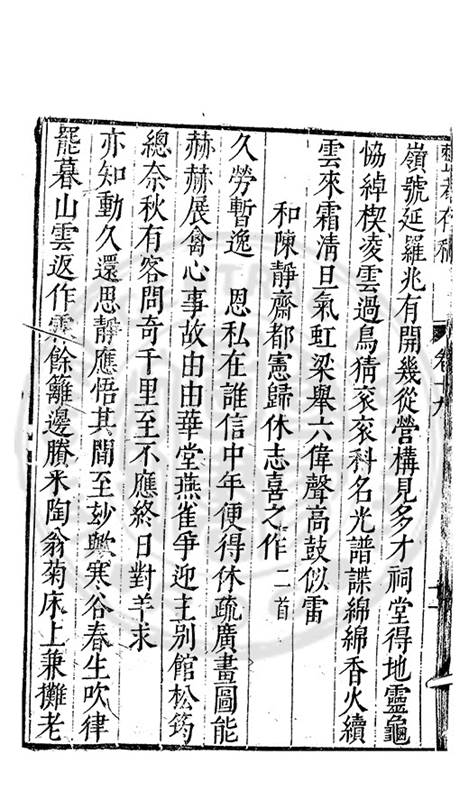 嶺號延羅兆有開幾從營構見多才祠堂得地靈龜
恊綽楔凌雲過鳥猜衮衮科名光譜諜綿綿香火續
雲來霜清旦氣虹梁舉六偉聲高鼓似雷
和陳靜齋都憲歸休志喜之作二首
久勞暫逸 恩私在誰信中年便得休疏廣畫圖能
赫赫展禽心事故由由華堂燕雀爭迎主别館松筠
總奈秋有客問奇千里至不應終日對羊求
亦知動久還思靜應悟其間至妙興寒谷春生吹律
罷暮山雲返作霖餘籬邊賸采陶翁菊床上兼攤老
卷十九